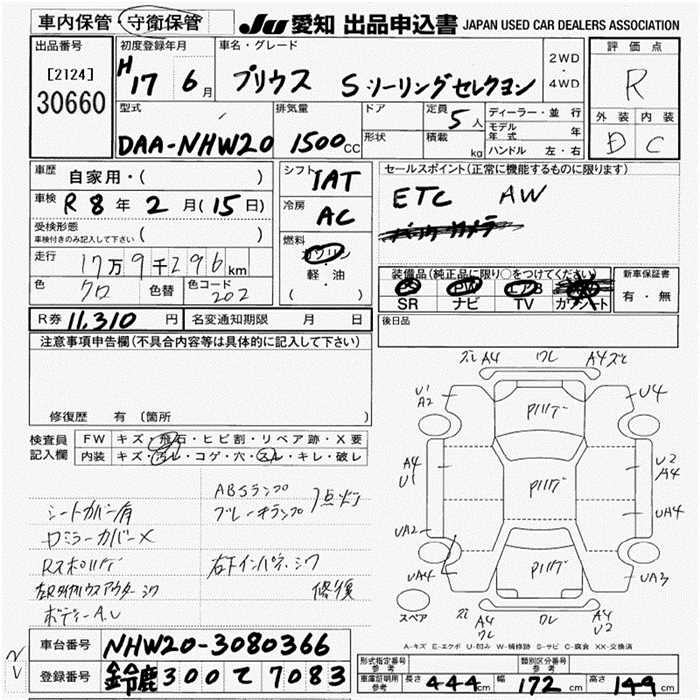 車内保管・守衛保管
JU 愛知 出品申込書 JAPAN USED CAR DEALERS ASSOCIATION
出品番号
[2124]
30660
初度登録年月
H 17 6月
車名・グレード
プリウス Sツーリングセレクション
2WD
・
4WD
評価点
R
外装 内装
D C
型式
DAA-NHW20
排気量
1500cc
ドア
形状
定員 5人
積載 kg
ディーラー・並行
モデル年式 年
ハンドル 左・右
車歴
自家用・( )
車検 R8年2月(15日)
受検形態
車検付きのみ記入して下さい ( )
走行 17万9千296km
色 クロ 色替 色コード 202
シフト IAT
冷房 AC
燃料
ガソリン
・
軽・油
( )
セールスポイント(正常に機能するものに限ります)
ETC AW
装備品(純正品に限り○をつけてください)
SR ナビ TV カワシート
新車保証書
有・無
R券 11,310円 名変通知期限 月 日
後日品
注意事項申告欄(不具合内容等は具体的に記入して下さい)
修復歴 有〔箇所 〕
検査員
記入欄
FW キズ・飛石・ヒビ割・リペア跡・X要
内装 キズ・汚レ・コゲ・穴・スレ・キレ・破レ
ABSランプ
ブレーキランプ 点灯
シートカバー有
ロミラーカバーX
Rスポイリデ
右下インパネ、シワ
左Rタイヤハウスアウター シワ
修復
ボディーA.U
ズレ A4 ワレ A4 ズレ
U1
A2
U4
Pハリデ
A4
U1
Pハリデ
U2
A4
UA2
UA4
UA4
Pハリデ
UA3
スペア
ズレ A4
ワレ
ワレ
U4 ズレ
A-キズ E-エクボ U-凹み W-補修跡 S-サビ C-腐食 XX-交換済
車台番号 NHW20-3080366
登録番号 鈴鹿300て7083
形式指定番号
参考
類別区分番号
参考
車庫証明用
参考
長さ 444cm 幅 172cm 高さ 149cm